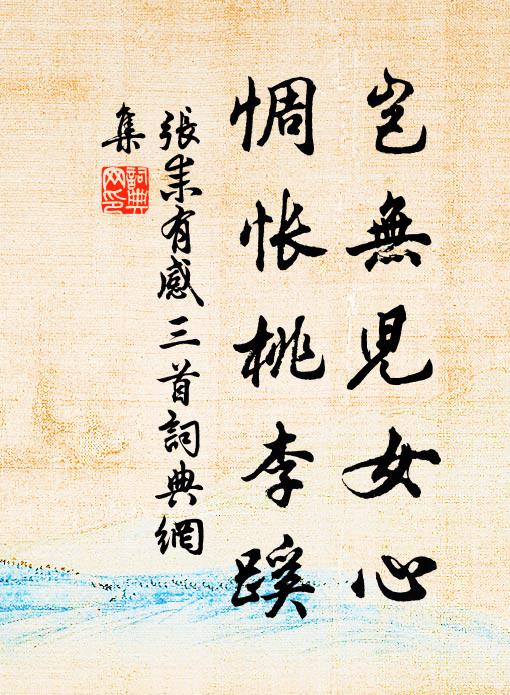 岂無児女心
惆怅桃李蹊
張耒有感三首詞典網
集
詞典
网印